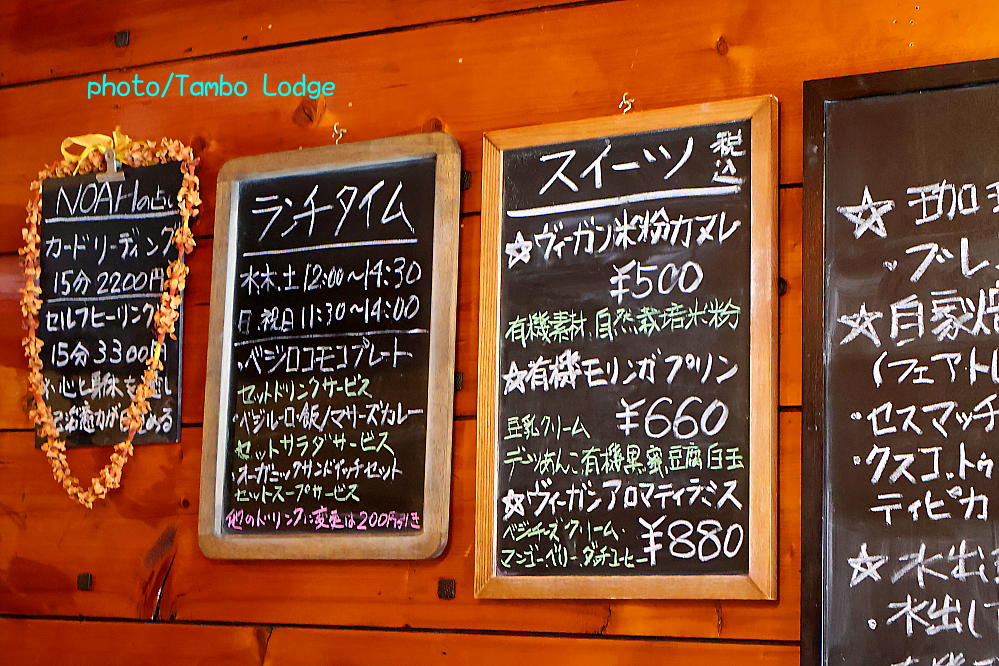 photo/Tambo Lodge
NOAHの占い
カードリーディング
15分 2200円
セルフヒーリング
15分 3300円
心と身体を癒し
める
ランチタイム
水木.土 12:00〜14:30
日.祝日 11:30〜14:00
・ベジロコモコプレート
セットドリンクサービス
・ベジルーロー飯/マサーズカレー
セットサラダサービス
オーガニックサンドイッチセット
セットスープサービス
他のドリンクに変更は200円引き
スイーツ 税込
☆ヴィーガン米粉カヌレ
¥500
有機素材.自然栽培米粉
☆有機モリンガプリン
豆乳クリーム ¥660
デーツあんこ有機黒蜜豆腐白玉
☆ヴィーガンアロマティラミス
ベジチーズクリーム.
マンゴー.ベリー.ダッチコーヒー ¥880
☆珈
・ブレ
☆自家焙
(フェアトレ
・セスマッチ
・クスコ.トゥ
ティピカ
☆水出
・水出し